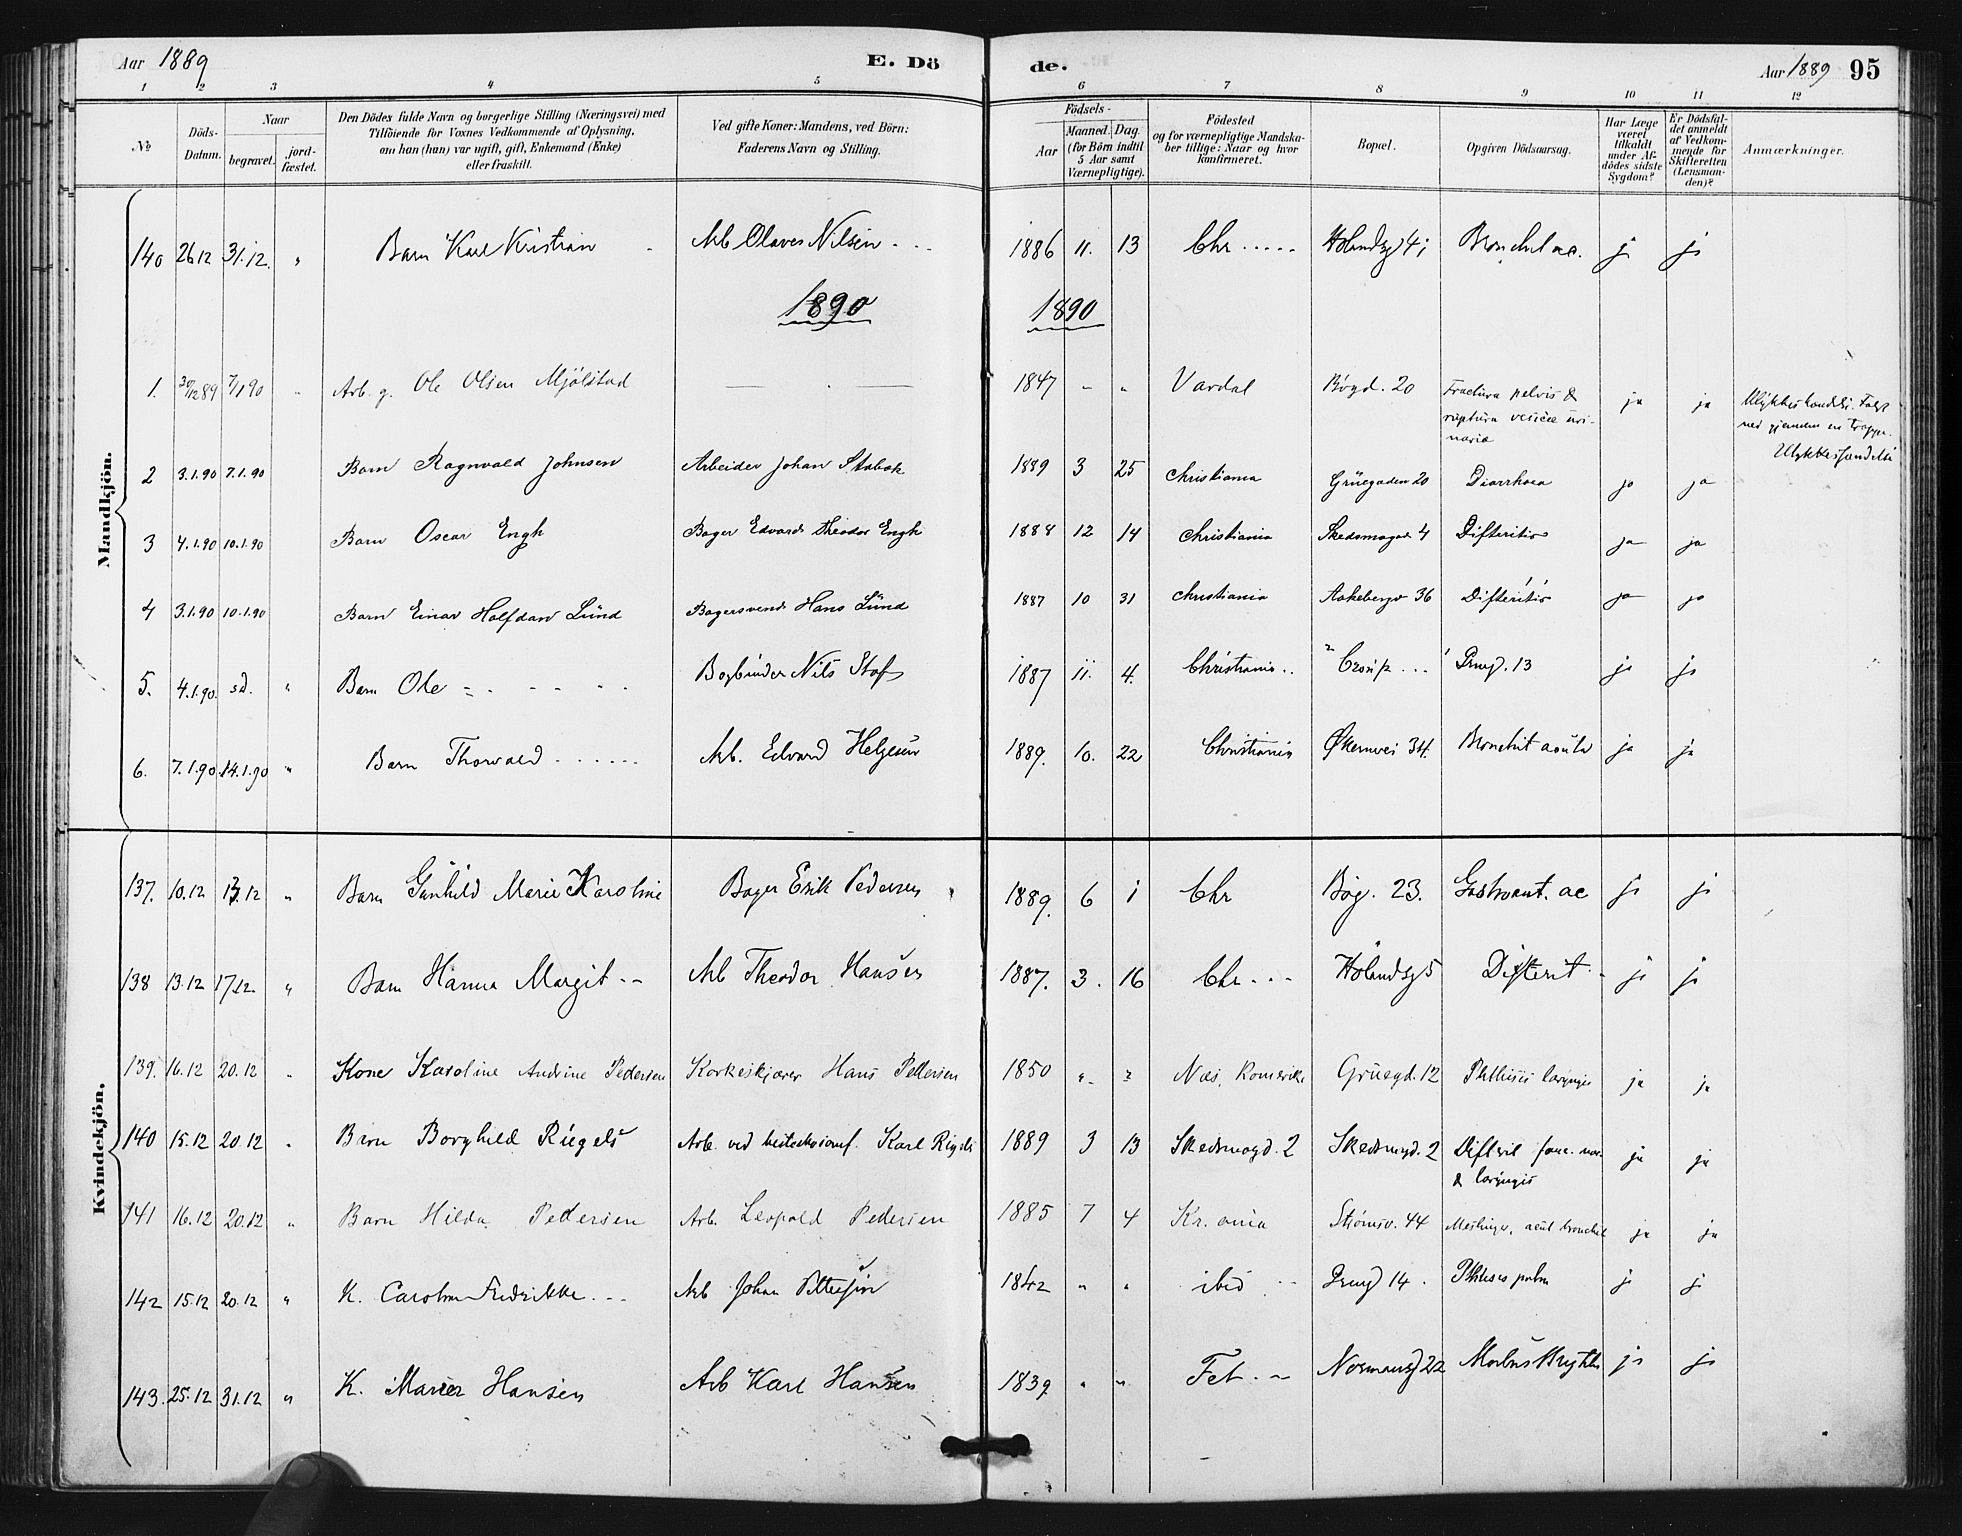 Aar 1889 E. Dö de. Aar 1889 95
1 2 3 4 5 6 7 8 9 10 11 12
№
Döds-Datum.
Naar
begravet.
jord-fæstet.
Den Dödes fulde Navn og borgerlige Stilling (Næringsvei) med
Tilföiende for Voxnes Vedkommende af Oplysning,
om han (hun) var ugift, gift, Enkemand (Enke)
eller fraskilt.
Ved gifte Koner: Mandens, ved Börn:
Faderens Navn og Stilling.
Födsels-
Aar
Maaned. Dag
(for Börn indtil
5 Aar samt
Værnepligtige).
Födested
og for værnepligtige Mandska-
ber tillige: Naar og hvor
konfirmeret.
Bopæl.
Opgiven Dödsaarsag.
Har Læge
været
tilkaldt
under Af-
dödes sidste
Sygdom?
Er Dödsfal-
det anmeldt
af Vedkom-
mende for
Skifteretten
(Lensman-
den)?
Anmærkninger.
Mandkjön.
140 26 12 31.12. " Barn Karl Kristian Arb Olaves Nilsen 1886 11. 13 Chr Hölandsg 4 Bronchit ac. j j
1890 1890
1. 30/12 89 7/1 90 " Arb. g. Ole Olsen Mjölstad — . — 1847 " " Vardal Bögd. 20 Fractura pelvis & ja ja Ulykkeshændelse. Falst
ruptura vesicæ uri- ned gjennem en Trappe.
naria Ulykkeshændelse
2 3.1.90 7.1.90 Barn Ragnvald Johnsen Arbeider Johan Stabæk 1889 3 25 Christiania Grüegaden 20 Diarrhoea ja ja
3 4.1.90 10.1.90 Barn Oscar Engh Bager Edvard Theodor Engh 1888 12 14 Christiania Skedsmogad 4 Difteritis ja ja
4 3.1.90 10.1.90 Barn Einar Halfdan Lünd Bagersvend Hans Lünd 1887 10 31 Christiania Aakebergv 36 Difteritis ja ja
5. 4.1.90. sd. " Barn Ole Bogbinder Nils Staf 1887 11. 4. Christiania Croup Prmgd. 13 j j
6. 7.1.90 14.1.90 " Barn Thorvald Arb. Edvard Helgesen 1889. 10. 22 Christiania Økernvei 34. Bronchit acuta ja ja
Kvindekjön.
137. 10.12 13.12 " Barn Gunhild Marie Karoline Bager Erik Pedersen 1889. 6 1 Chr Bög. 23. Gastroent. ac j j
138 13.12 17 12. " Barn Hanna Margit Arb Theodor Hansen 1887. 3. 16 Chr Hölandsg 5 Difterit j j
139. 16.12 20.12 " Kone Karoline Andrine Pedersen Korkeskjærer Hans Pettersen 1850 " " Næs, Romerike Gruegd. 12 Phthisis laryngis ja ja
140 15.12 20.12 " Barn Borghild Riegels Arb. ved Karl Riegels 1889 3 13 Skedsmogd. 2 Skedsmgd. 2 Difterit fauc. nar. ja ja
& laryngis
141 16.12 20.12 " Barn Hilda Pettersen Arb. Leopold Pedersen 1885 7 4 Kr. ania Strömsv. 44 Meslinger, acut bronchit ja ja
142 15.12 20.12 " K. Carolin Fredrikke Arb Johan Pettersen 1842 " " ibid Prmgd 14 Phthisis pulm j j
143. 25.12 31.12 " K. Maries Hansen Arb Karl Hansen 1839 " " Fet Normansgd 22 Morbus Brightii j j